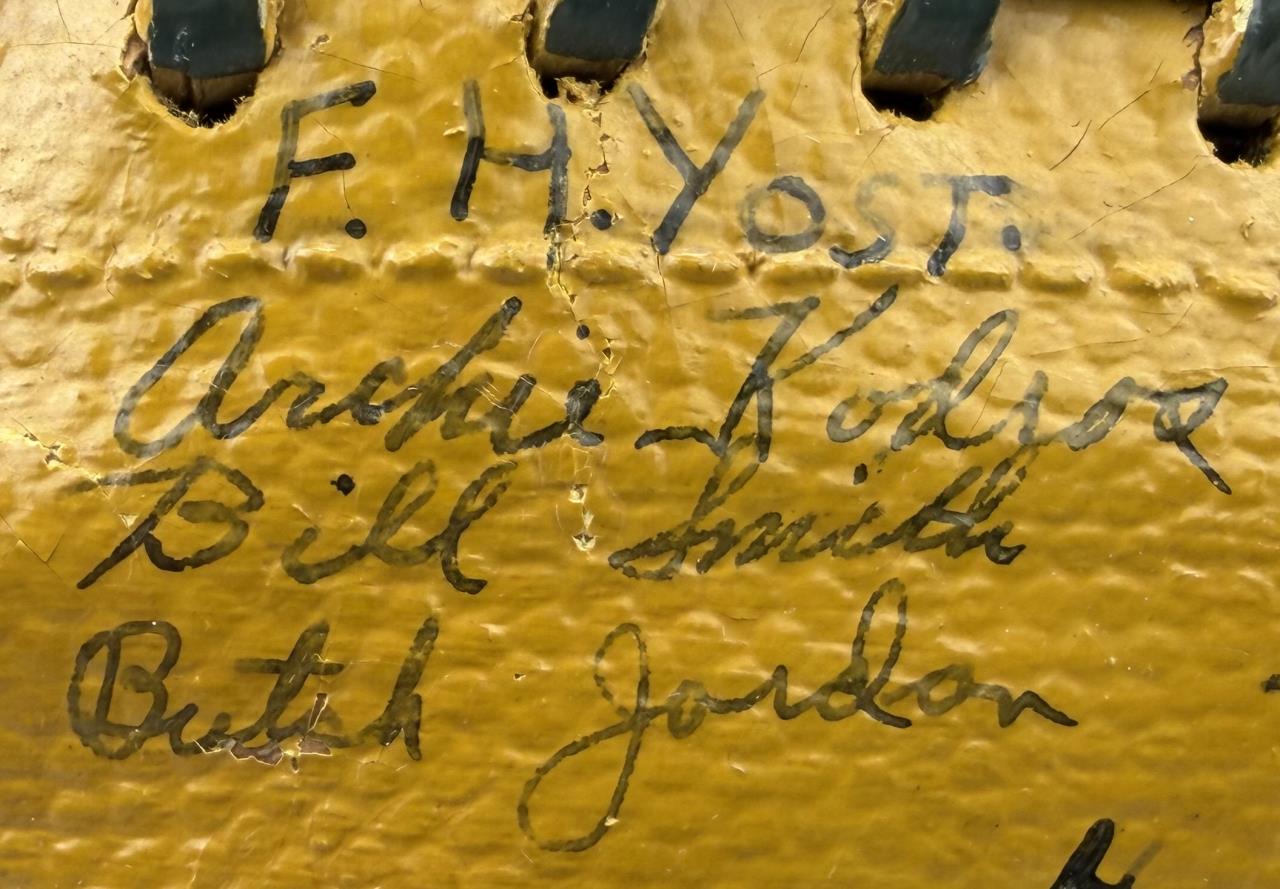 F. H. YOST.
Archie Kodros
Bill Smith
Butch Jordan